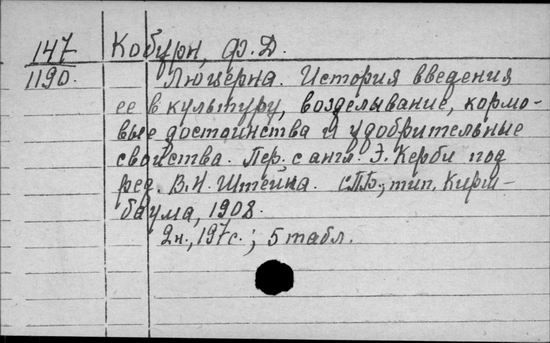 147
1190.
Кобурн, Ф. Д.
Люцерна. История введения
ее в культуру, возделывание, кормо-
вые достоинства и удобрительные
свойства. Пер. с англ. Э. Керби под
ред. В. И. Штейна. СПБ., тип. Кирш-
баума, 1908.
2н., 197с.; 5 табл.